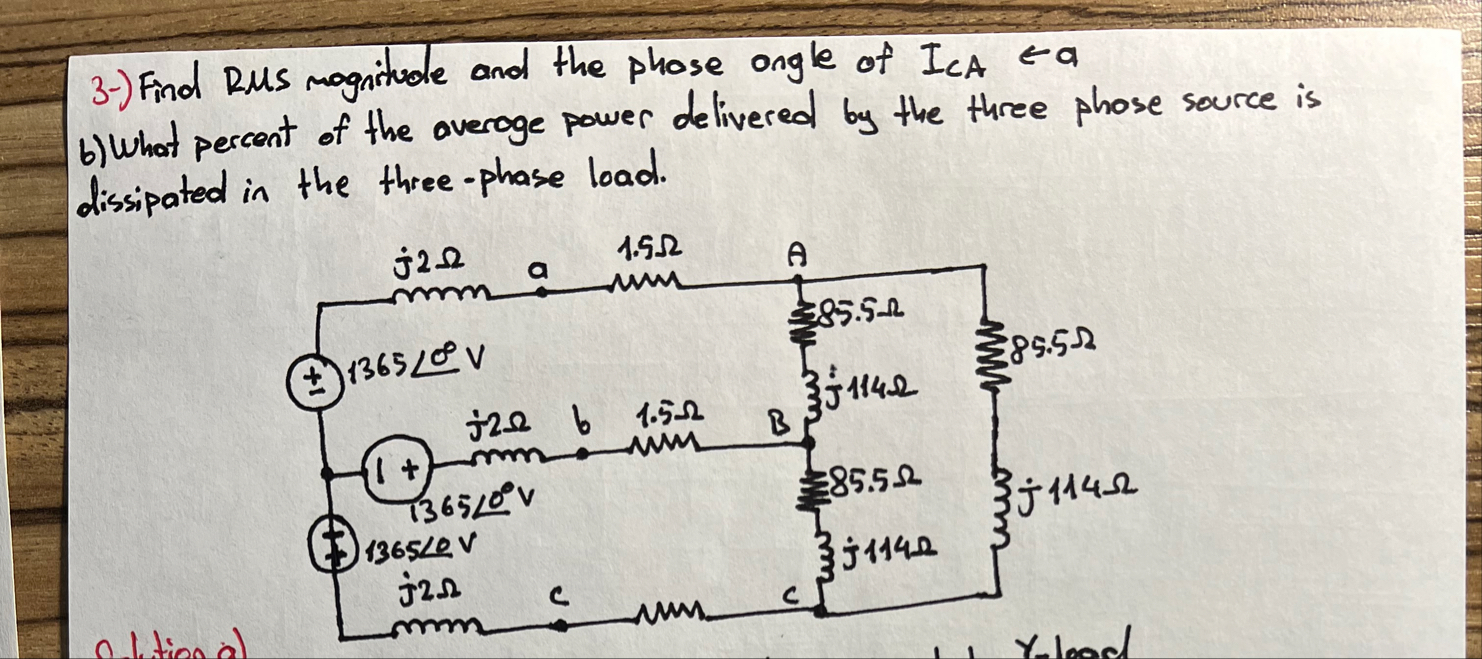 3-) Find RMS magnitude and the phase angle of ICA ←a
b) What percent of the average power delivered by the three phase source is
dissipated in the three-phase load.
j2Ω a 1.5Ω A
85.5Ω
1365∠0° V
85.5Ω
j114Ω
j2Ω b 1.5Ω B
1365∠0° V
85.5Ω
j114Ω
1365∠0 V
j114Ω
j2Ω c C
Solution a)
Y-load